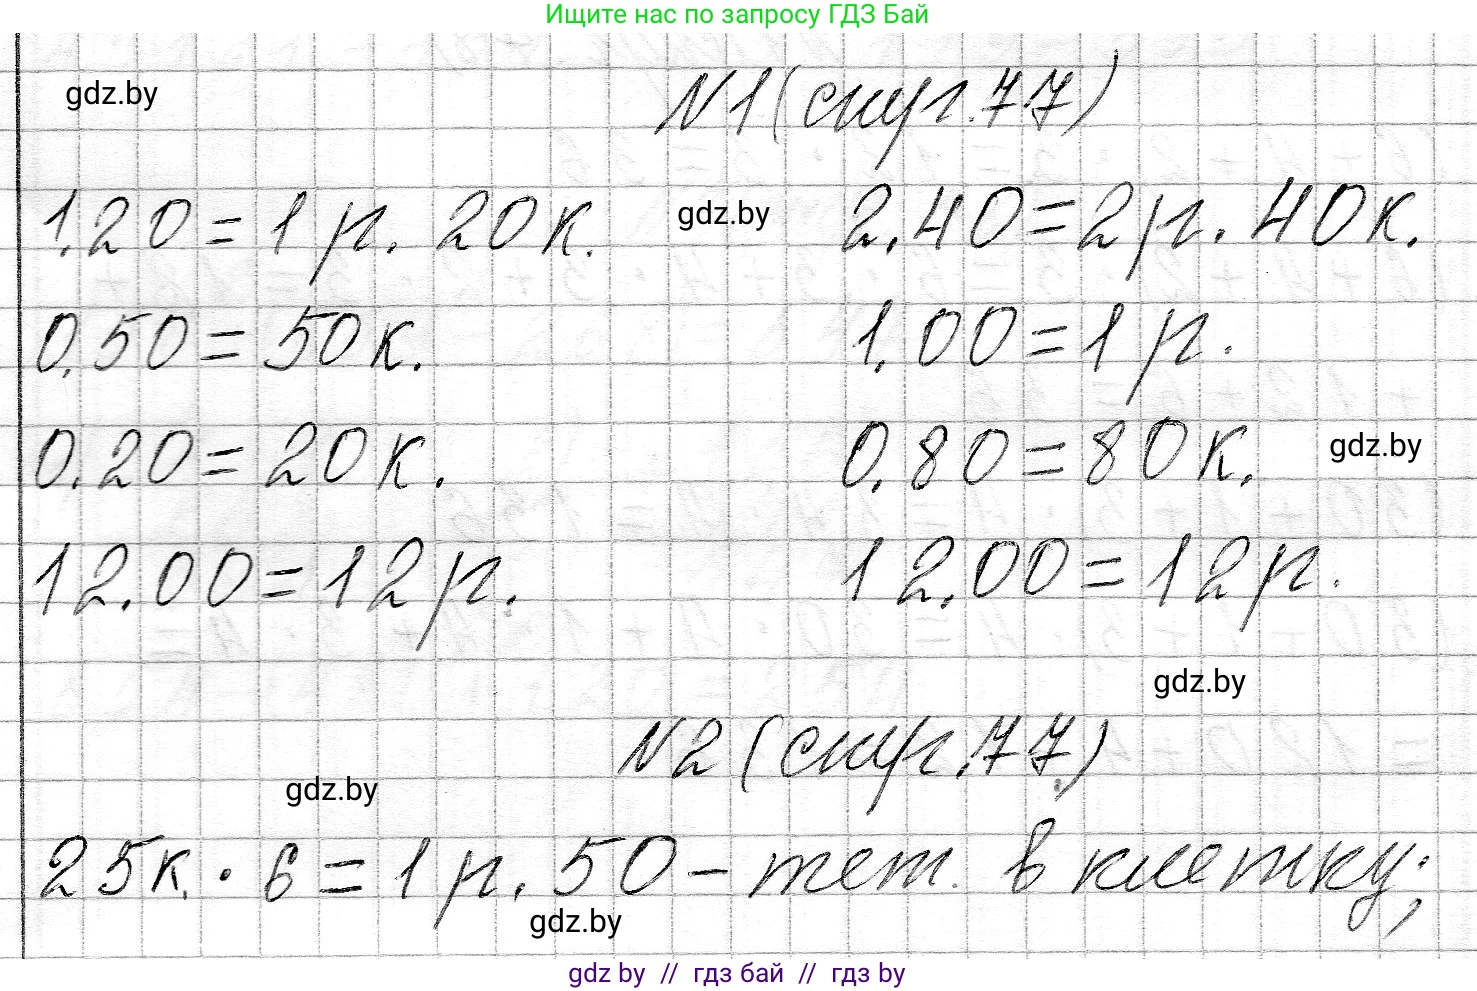 Ищите нас по запросу ГДЗ Бай
gdz.by
N1 (снуг.77)
1.20=1 р. 20к. gdz.by 2.40=2р. 40к.
0.50=50к. 1.00=1 р.
0.20=20к. 0.80=80к. gdz.by
12.00=12р. 12.00=12р.
gdz.by
N2 (снуг.77)
gdz.by
25к. · 6=1 р. 50 – тет. в клетку;
gdz.by
gdz by // гдз бай // гдз by